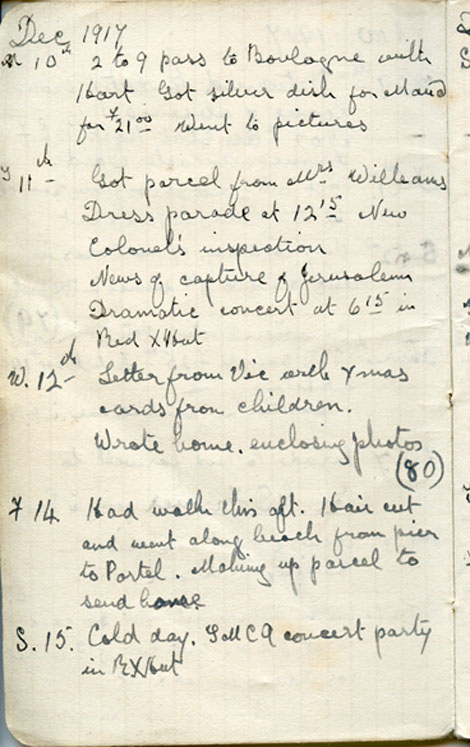 Dec 1917
M 10th 2 to 9 pass to Boulogne with
Hart. Got silver dish for Maud
for F21.00 Went to pictures
T 11th Got parcel from Mrs Williams
Dress parade at 12.15 New
Colonel's inspection
News of capture of Jerusalem
Dramatic concert at 6.15 in
Red X Hut
W. 12th Letter from Vic with Xmas
cards from children.
Wrote home. enclosing photos
(80)
F 14 Had walk this aft. Hair cut
and went along beach from pier
to Portel. Making up parcel to
send home
S. 15. Cold day. YMCA concert party
in RX Hut